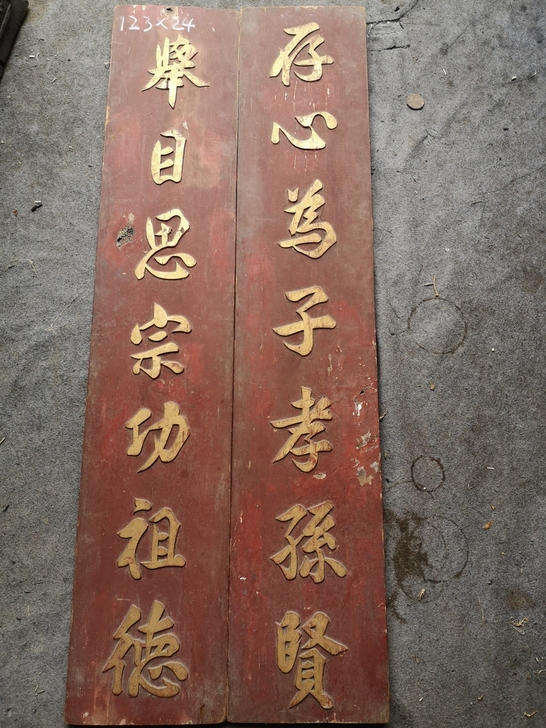 存心為子孝孫賢
舉目思宗功祖德
123×24